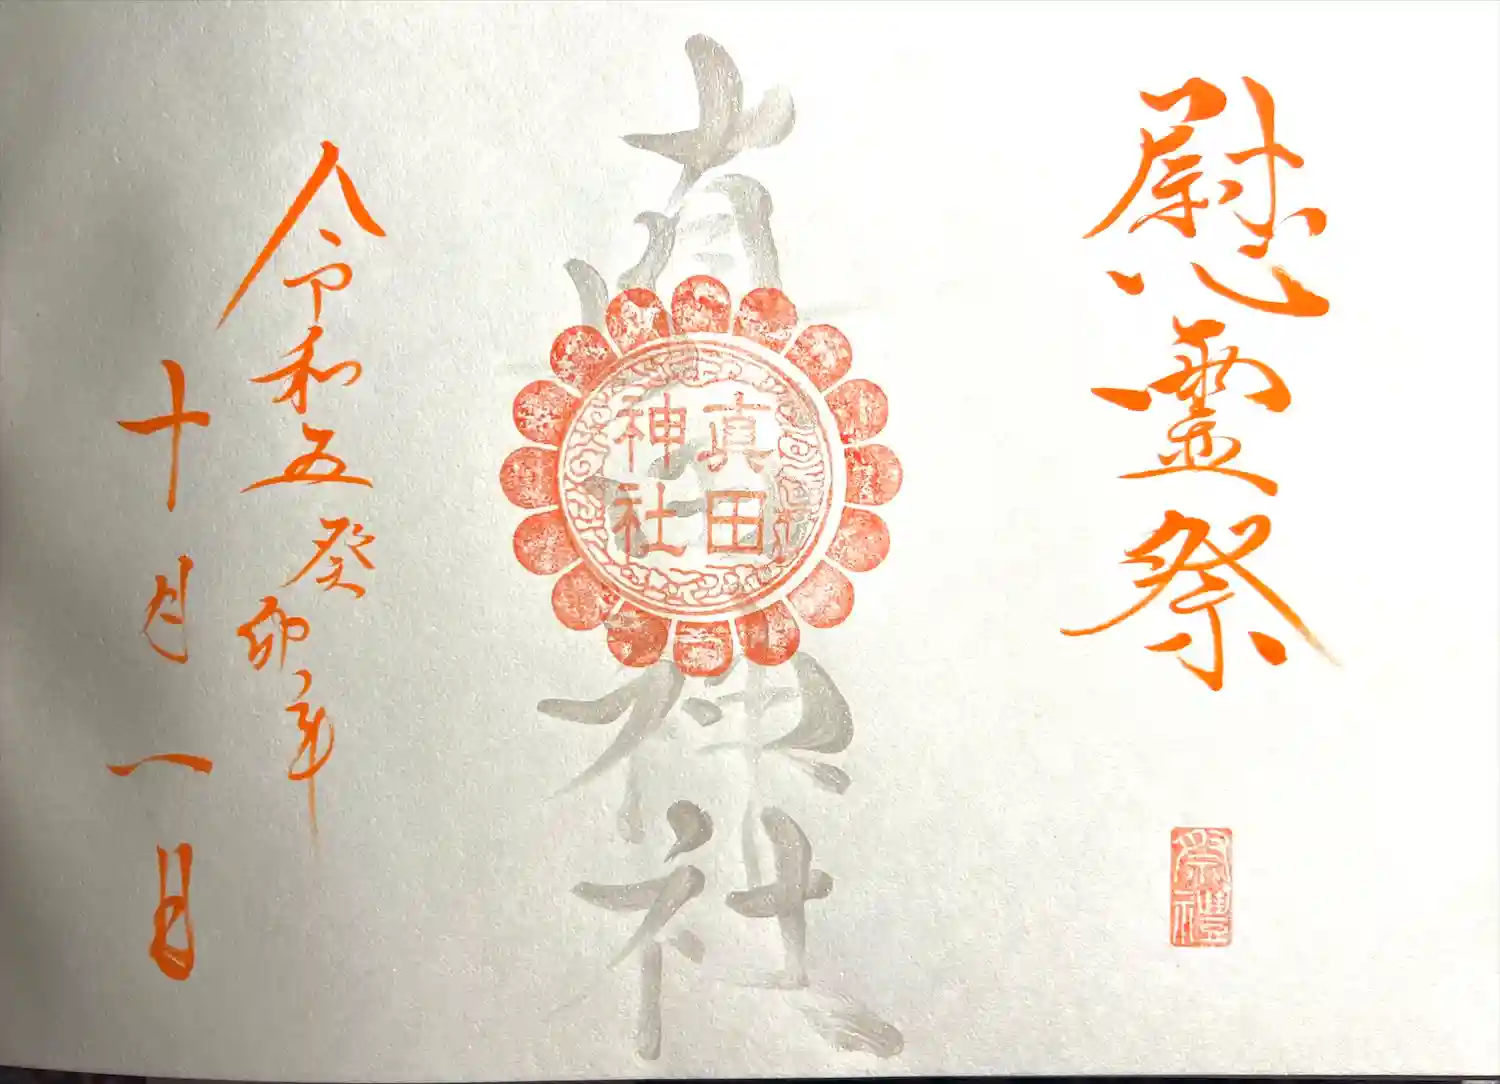 慰霊祭
祭禮
真田神社
真田
神社
令和五癸卯年
十月一日